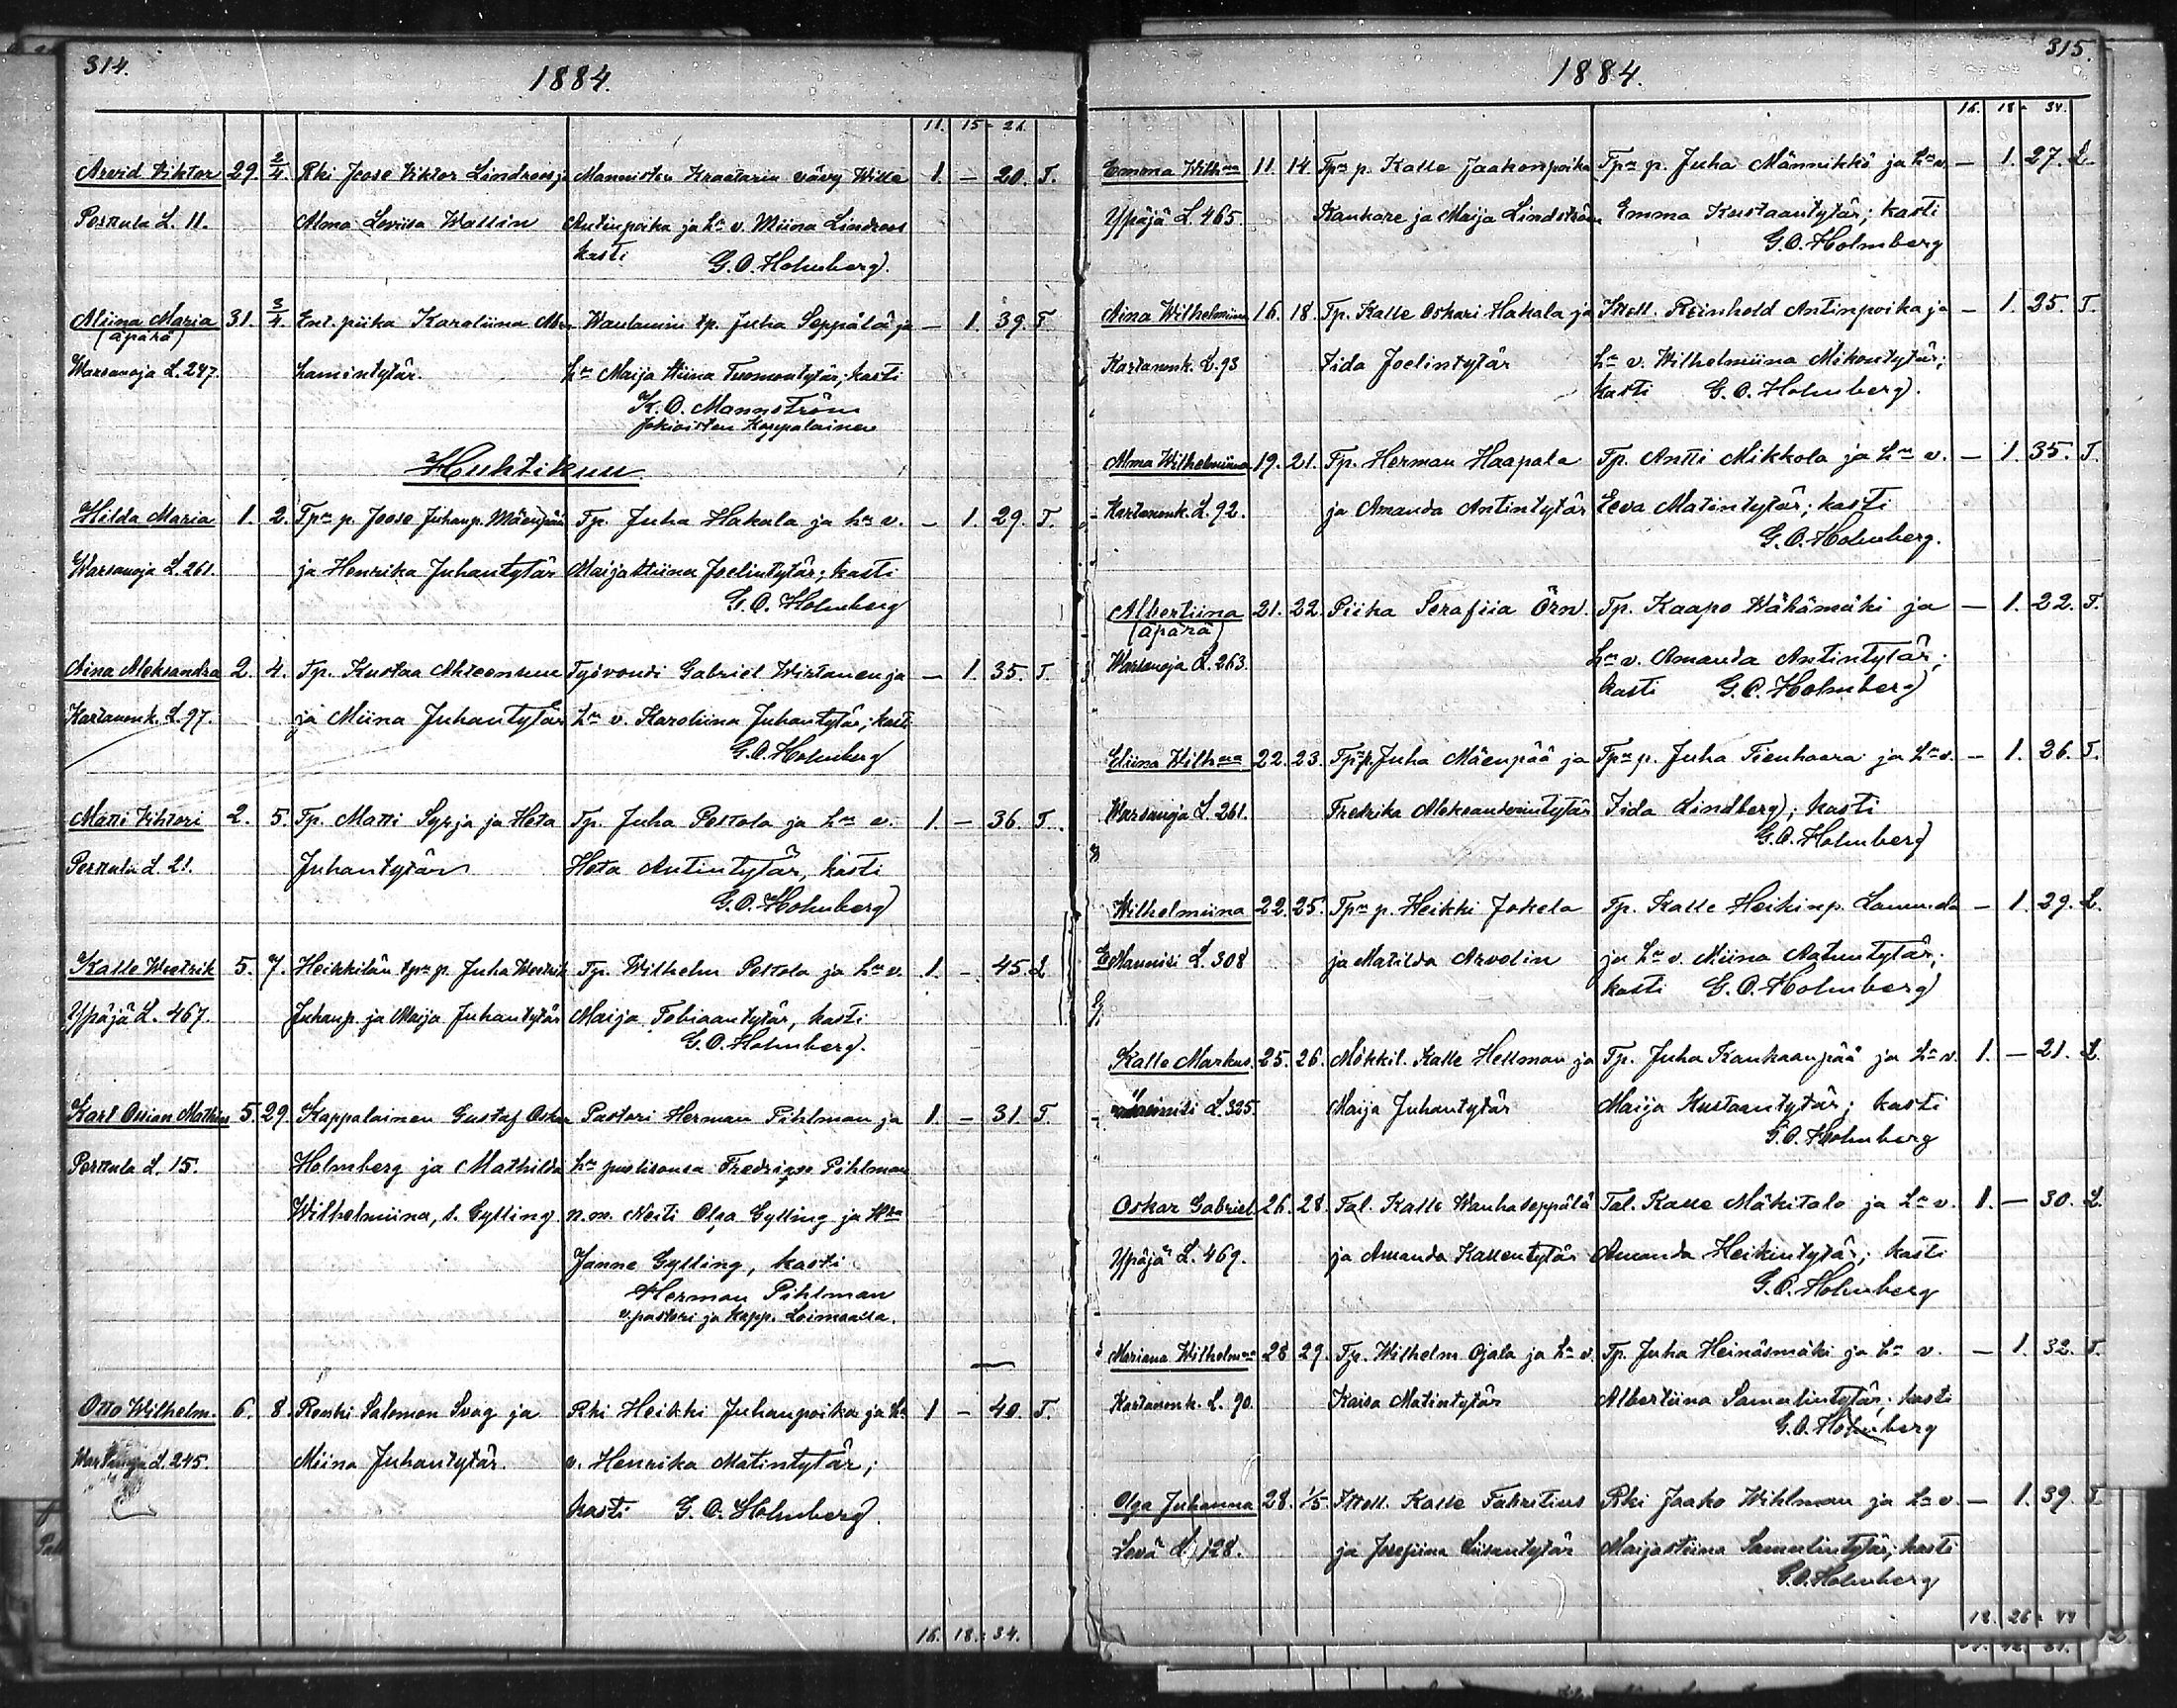 314.
1884.
11. 15 = 26.
Arvid Viktor 29. 2/4. Rki Joose Viktor Lindroos ja Mannisten Kraatarin vävy Wille 1. — 20. T.
Perttula L. 11. Alma Lovisa Wallin Antinpoika ja hn v. Miina Lindroos
kasti G. O. Holmberg.
Miina Maria 31. 3/4. Entpiika Karoliina Abra Waulamin tp. Juha Seppälä ja — 1. 39. T
(äpärä)
Warsanoja L. 247. hamintytär. hn Maija Stiina Tuomontytär; kasti
K. O. Mannström
Jokioisten Kappalainen
Huhtikuu
Hilda Maria 1. 2. Tpn p. Joose Juhanp. Mäenpää Tp. Juha Hakala ja hn v. — 1. 29. T.
Warsanoja L. 261. ja Henrika Juhantytär Maija Stiina Joelintytär; kasti
G. O. Holmberg
Aina Aleksandra 2. 4. Tp. Kustaa Ahteensuu Työvouti Gabriel Wirtanen ja — 1. 35. T.
Kartanonk. L. 97. ja Miina Juhantytär hn v. Karoliina Juhantytär; kasti
G. O. Holmberg
Matti Vihtori 2. 5. Tp. Matti Syrja ja Heta Tp. Juha Pertola ja hn v. 1. — 36. T.
Perttula L 21. Juhantytär Heta Antintytär, kasti
G. O. Holmberg
Kalle Weetrik 5. 7. Heikkilän tpn p. Juha Weetrik Tp. Wilhelm Pettola ja hn v. 1. — 45. L
Ypäjä L. 467. Juhanp. ja Maija Juhantytär Maija Tobiaantytär, kasti
G. O. Holmberg.
Karl Ossian Mathias 5. 29. Kappalainen Gustaf Oskar Pastori Herman Pihlman ja 1. — 31. T.
Perttula L. 15. Holmberg ja Mathilda hn puolisonsa Fredrique Pihlman
Wilhelmiina, s. Gylling n. m. Neiti Olga Gylling ja Hra
Janne Gylling, kasti
Herman Pihlman
v. pastori ja kapp. Loimaalla.
Otto Wilhelm. 6. 8. Renki Salomon Svag ja Rki Heikki Juhanpoika ja hn 1 — 40. T.
Warsanoja L. 245. Miina Juhantytär. v. Henrika Matintytär;
kasti G. O. Holmberg.
16. 18 = 34.
315.
1884.
16. 18 = 34.
Emma Wilhna 11. 14. Tpn p. Kalle Jaakonpoika Tpn p. Juha Männikkö ja hn v. — 1. 27. L.
Ypäjä L. 465. Kankare ja Maija Lindström Emma Kustaantytär; kasti
G. O. Holmberg
Aina Wilhelmiina 16. 18. Tp. Kalle Oskari Hakala ja Itsell. Reinhold Antinpoika ja — 1. 25. T.
Kartanonk. L. 93 Iida Joelintytär hn v. Wilhelmiina Mikontytär;
kasti G. O. Holmberg.
Alma Wilhelmiina 19. 21. Tp. Herman Haapala Tp. Antti Mikkola ja hn v. — 1. 35. T.
Kartanonk. L. 92. ja Amanda Antintytär Eeva Matintytär; kasti
G. O. Holmberg.
Albertiina 21. 22. Piika Serafiia Örn. Tp. Kaapo Wähämäki ja — 1. 22. T.
(äpärä)
Warsanoja L. 263. hn v. Amanda Antintytär;
kasti G. O. Holmberg
Eliina Wilhna 22. 23. Tpn p. Juha Mäenpää ja Tpn p. Juha Tienhaara ja hn v. — 1. 26. T.
Warsanoja L. 261. Fredrika Aleksanderintytär Iida Lindberg; kasti
G. O. Holmberg
Wilhelmiina 22. 25. Tpn p. Heikki Jokela Tp. Kalle Heikinp. — 1. 29. L.
Mannisi L. 308 ja Matilda Arvelin ja hn v. Miina Aatuntytär;
kasti G. O. Holmberg
Kalle Markus. 25. 26. Mökkil. Kalle Hellman ja Tp. Juha Kankaanpää ja hn v. 1. — 21. L.
L. 325. Maija Juhantytär Maija Kustaantytär; kasti
G. O. Holmberg
Oskar Gabriel 26. 28. Tal. Kalle Wanhaseppälä Tal. Kalle Mäkitalo ja hn v. 1. — 30. L.
Ypäjä L. 469. ja Amanda Kallentytär Amanda Heikintytär; kasti
G. O. Holmberg
Mariana Wilhelmna 28 29. Tp. Wilhelm Ojala ja hn v. Tp. Juha Heinäsmäki ja hn v. — 1. 32. T.
Kartanonk. L. 90. Kaisa Matintytär Albertiina Samulintytär; kasti
G. O. Holmberg
Olga Juhanna 28. 1/5 Itsell. Kalle Fabritius Rki Jaako Wihlman ja hn v. — 1. 39. T
Levä L. 128. ja Josefiina Liisantytär Maijastiina Samulintytär; kasti
G. O. Holmberg
18. 26 = 44